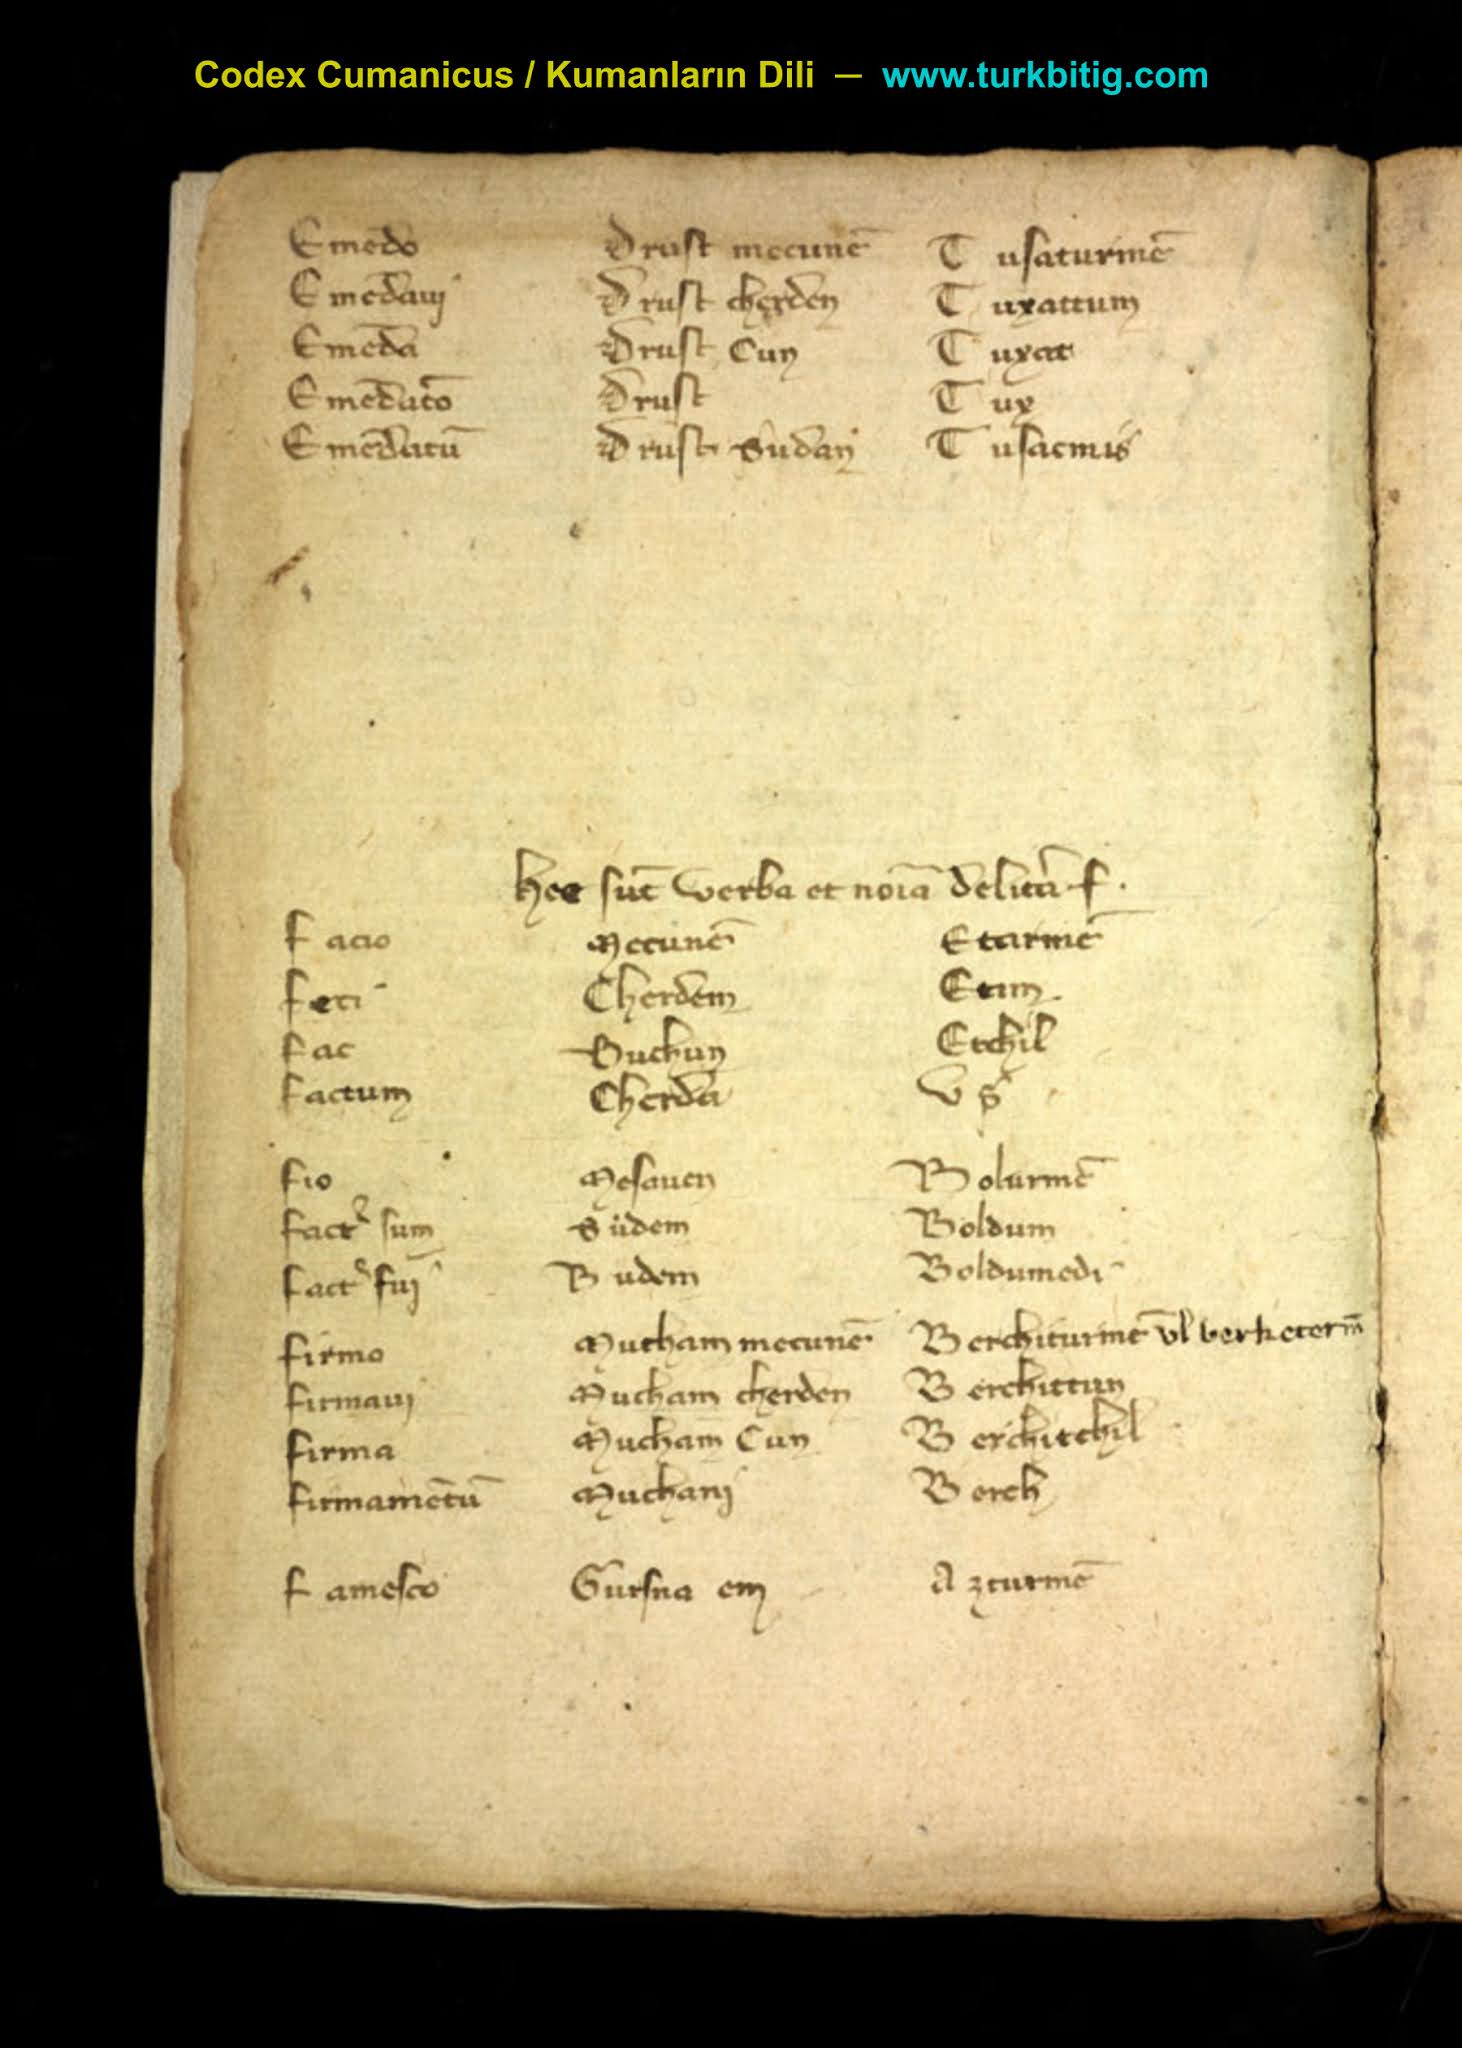 Codex Cumanicus / Kumanların Dili — www.turkbitig.com
Emēdo Drust mecunē Tusaturmē
Emēdauj Drust cherden Tuxattum
Emēda Drust Cun Tuxat
Emēdatō Drust Tux
Emēdatū Drust Sudanj Tusacmis
hec sūt verba et noīa de litā f.
Facio Mecunē Etarmē
Feci Cherdem Etum
Fac Buckun Etchil
Factum Cherda
Fio Mesauen Bolurmē
Fact᾽ sum Südem Boldum
Fact᾽ fuj Budem Boldumedi
Firmo Mucham mecunē Berchiturmē vl berketerm̄
Firmauj Mucham cherden Berchittun
Firma Mucham Cun Berchitchil
Firmamētū Muchanj Berch
Famesco Gursna em Azturmē